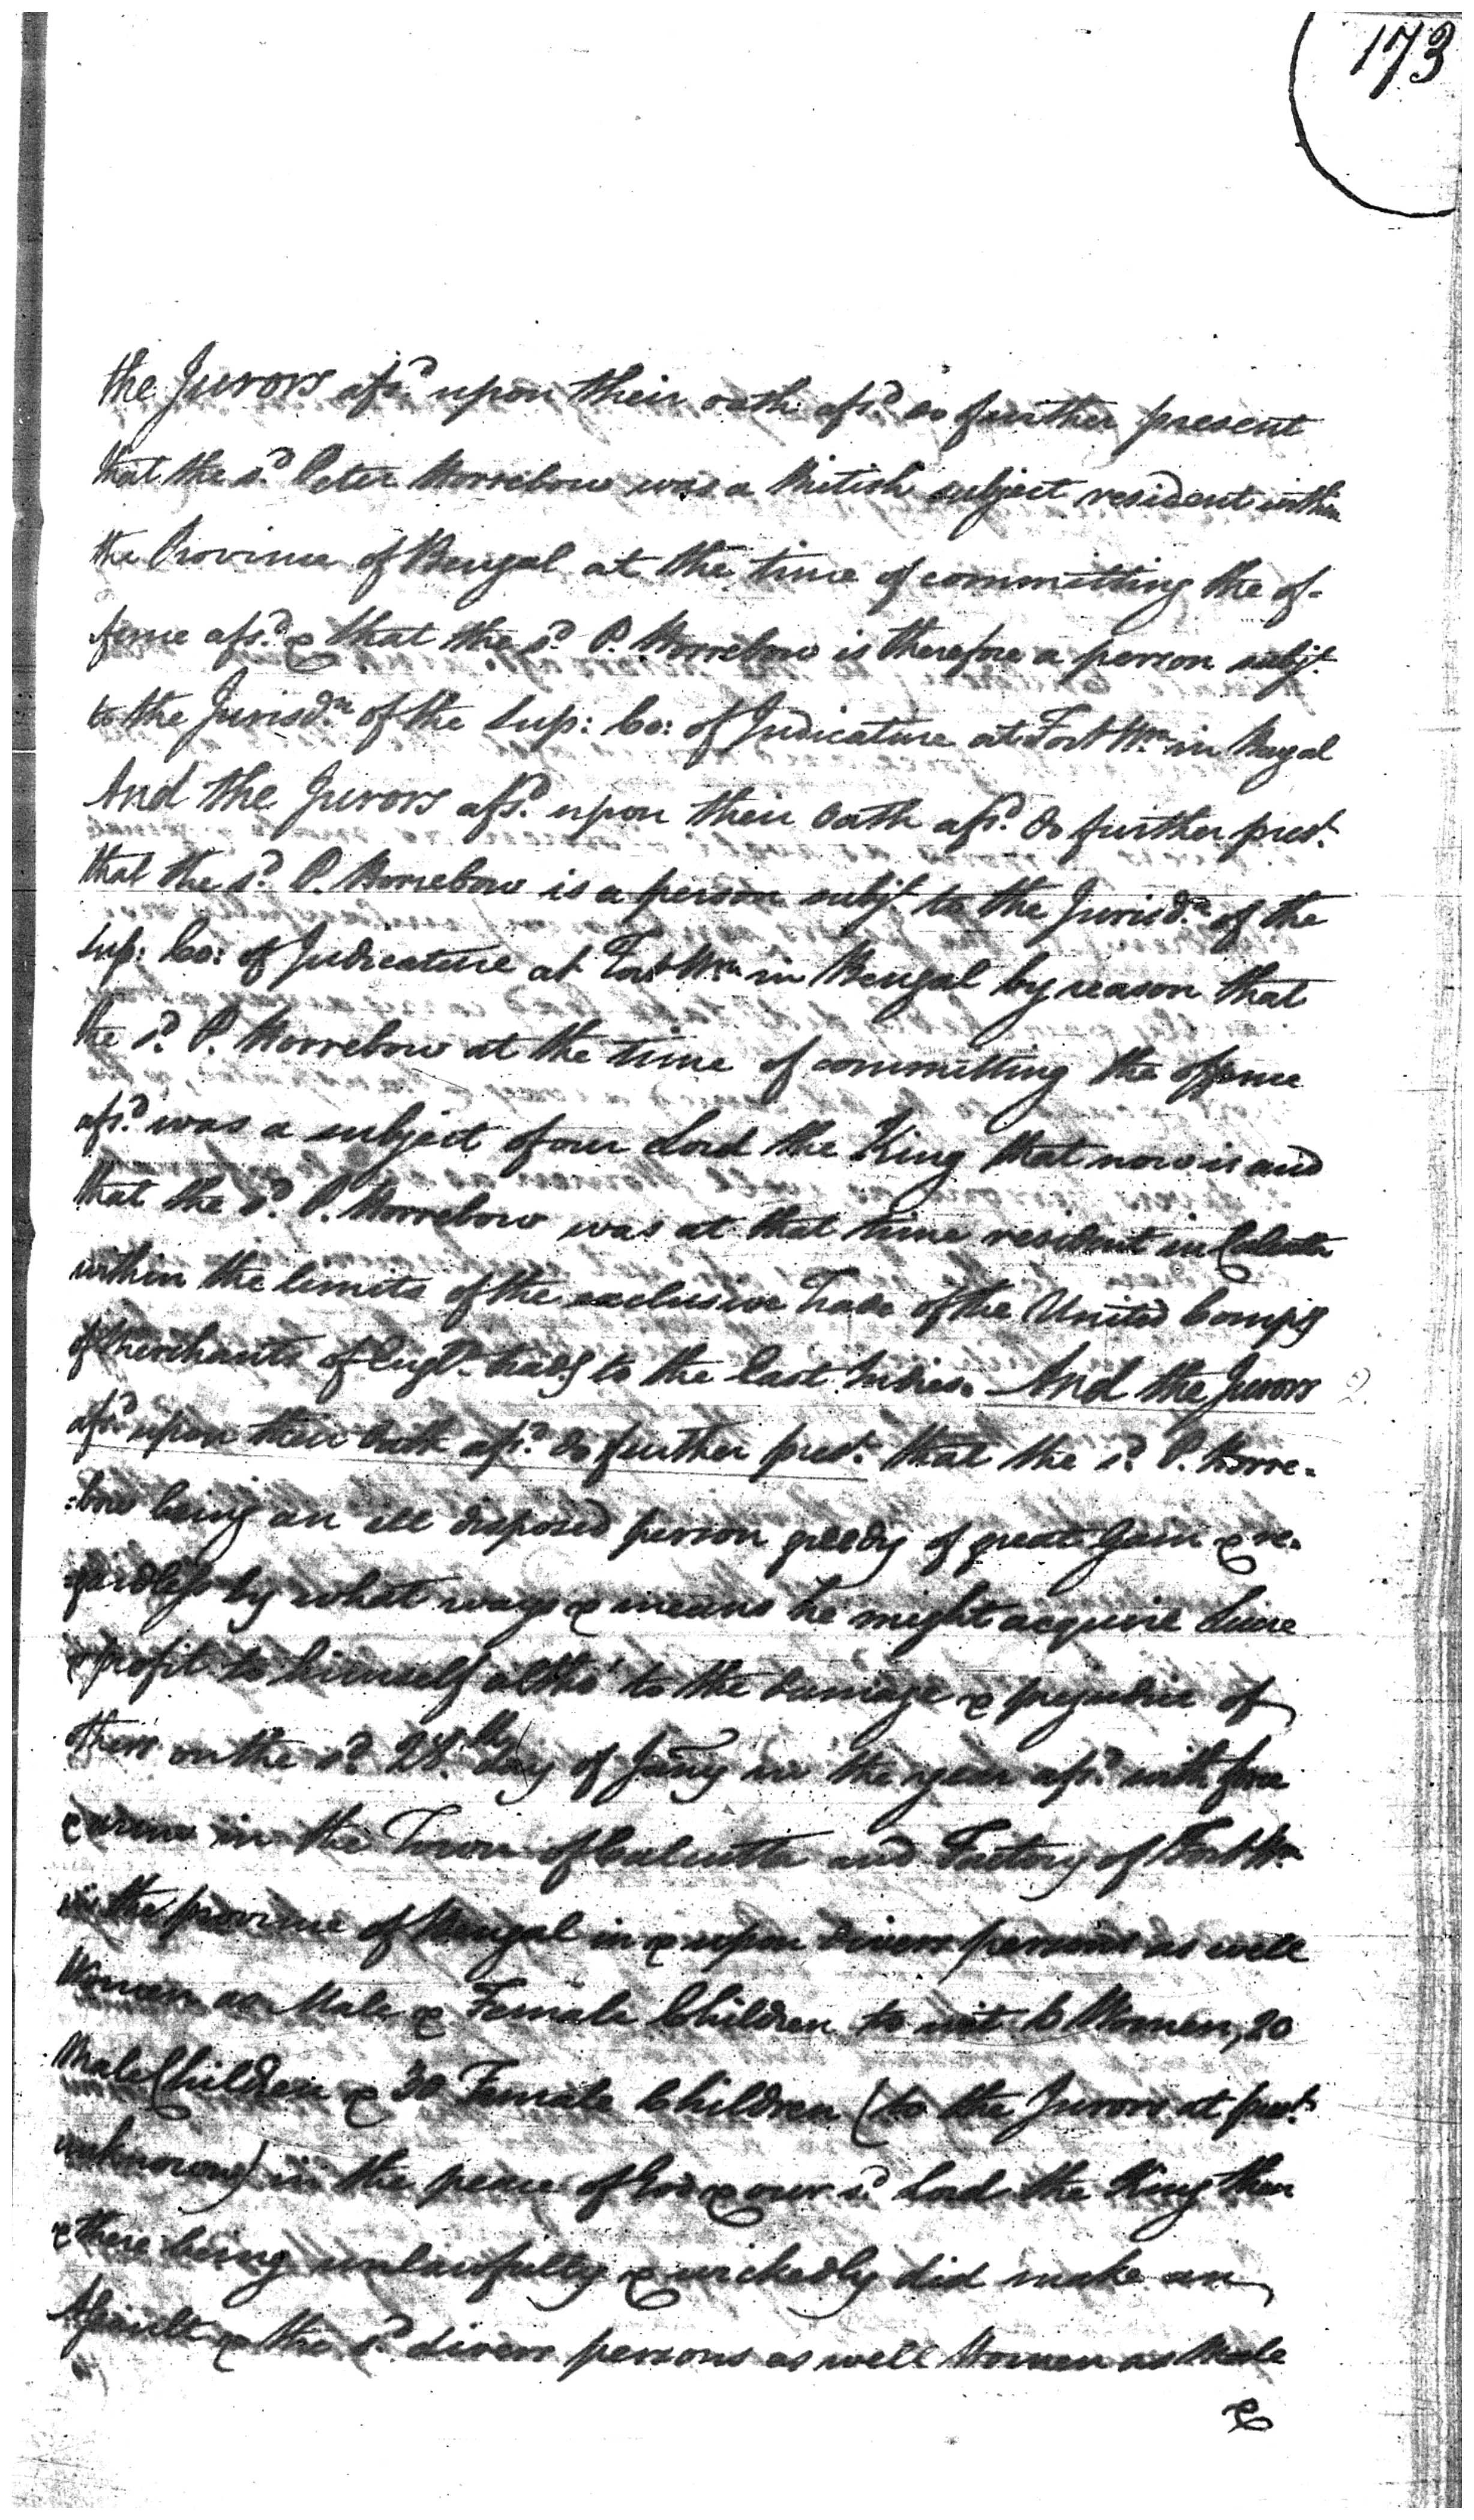 173
the Jurors afsd. upon their oath afsd. do further present
that the sd. Peter Horrebow was a British subject resident within
the Province of Bengal at the time of committing the of-
fence afsd. & that the sd. P. Horrebow is therefore a person subjt.
to the Jurisdn. of the Sup: Co: of Judicature at Fort Wm. in Bengal
And the Jurors afsd. upon their Oath afsd. do further prest.
that the sd. P. Horrebow is a person subjt. to the Jurisdn. of the
Sup: Co: of Judicature at Fort Wm. in Bengal by reason that
the sd. P. Horrebow at the time of committing the offence
afsd. was a subject of our Lord the King that now is and
that the sd. P. Horrebow was at that time resident in Calcutta
within the limits of the exclusive Trade of the United Compy
of Merchants of Engld. tradg to the East Indies. And the Jurors
2
afsd. upon their Oath afsd. do further prest. that the sd. P. Horre=
=bow being an ill disposed person greedy of great Gain & re=
=gardless by what ways & means he might acquire Lucre
& profit to himself altho' to the damage & prejudice of
others on the sd. 28.th day of Jany in the year afsd. with force
& arms in the Town of Calcutta and Factory of Fort Wm.
in the province of Bengal in & upon divers persons as well
Women as Male & Female Children to wit 6 Women, 20
Male Children & 30 Female Children (to the Jurors at prest.
unknown) in the peace of God & our sd. Lord the King then
& there being unlawfully & wickedly did make an
Assault & the sd. divers persons as well Women as Male
&